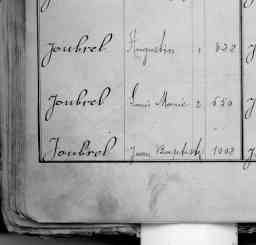 Joubrel Augustin 1 622
Joubrel Louis Marie 2 550
Joubrel Jean Baptiste 1002